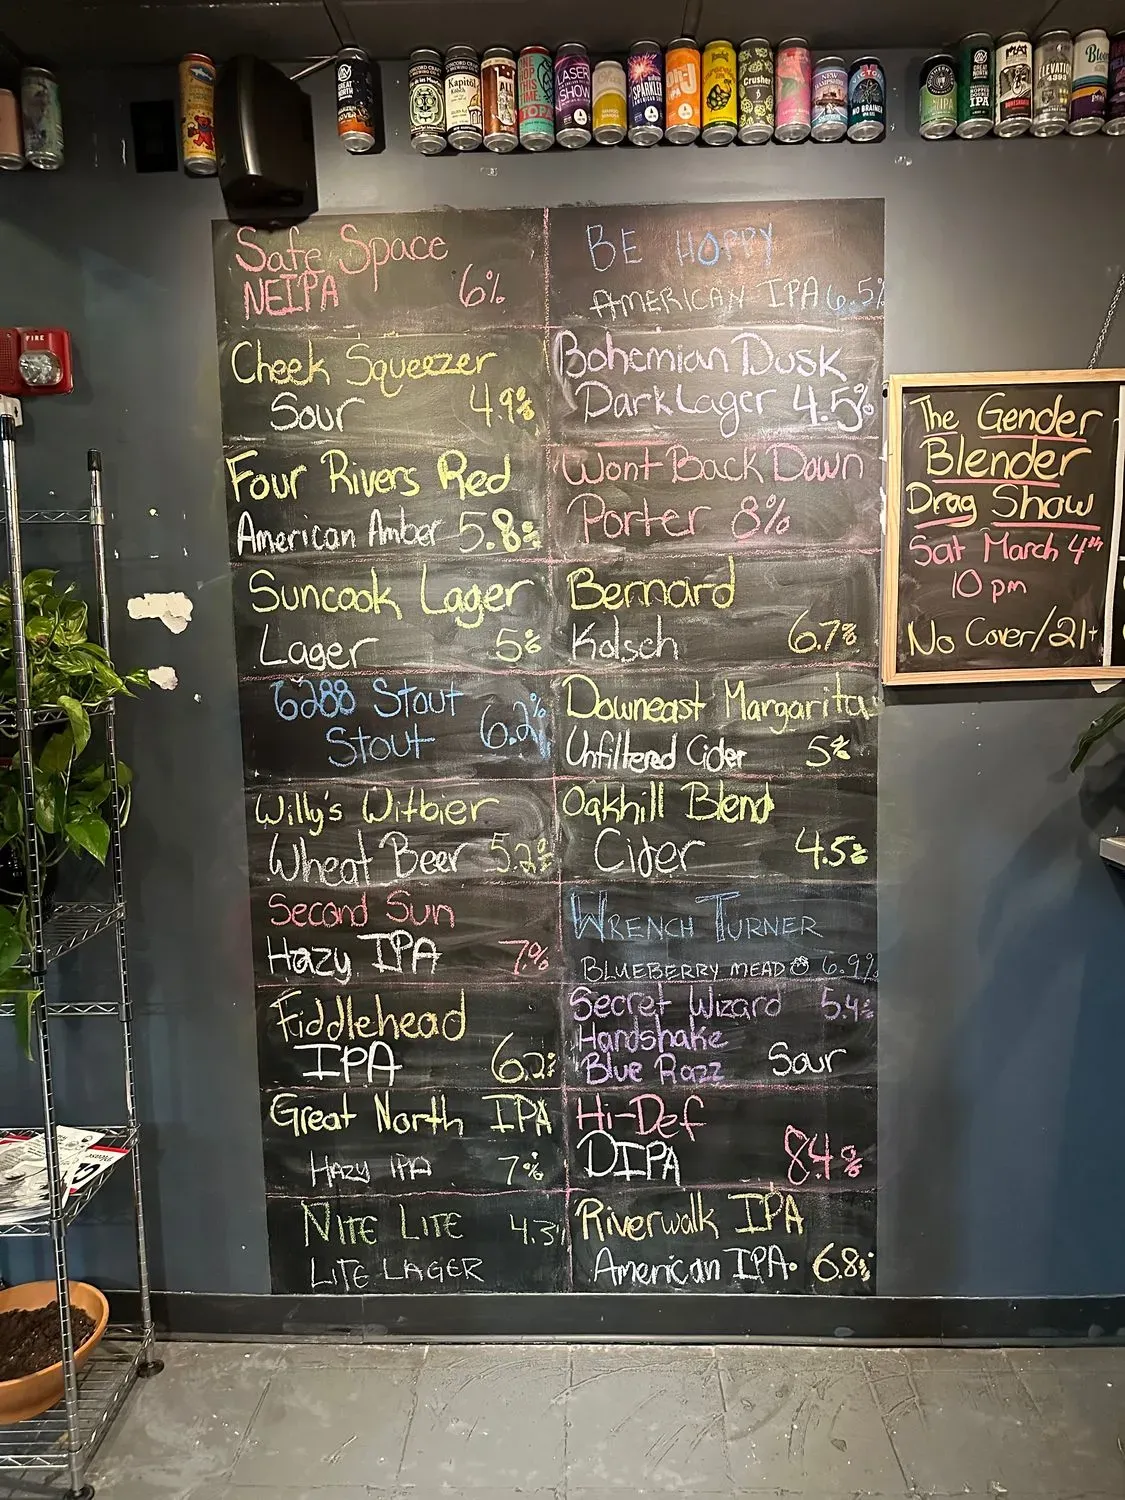 Safe Space
NEIPA 6%
Cheek Squeezer
Sour 4.9%
Four Rivers Red
American Amber 5.8%
Suncook Lager
Lager 5%
6288 Stout
Stout 6.2%
Willy's Witbier
Wheat Beer 5.2%
Second Sun
Hazy IPA 7%
Fiddlehead
IPA 6.2%
Great North IPA
HAZY IPA 7%
NITE LITE 4.3%
LITE LAGER
BE HOPPY
AMERICAN IPA 6.5%
Bohemian Dusk
Dark Lager 4.5%
Wont Back Down
Porter 8%
Bernard
Kolsch 6.7%
Downeast Margarita
Unfiltered Cider 5%
Oakhill Blend
Cider 4.5%
WRENCH TURNER
BLUEBERRY MEAD 6.9%
Secret Wizard 5.4%
Handshake
Blue Razz Sour
Hi-Def
DIPA 8.4%
Riverwalk IPA
American IPA. 6.8%
The Gender
Blender
Drag Show
Sat March 4th
10 pm
No Cover/21+
FIRE
GREAT
NORTH
Kapitol
LASER
SHOW
SPARKLER
Crusher
NEW
HAMPSHIRE
NO BRAINER
IPA
ELEVATION